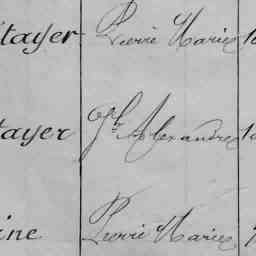 tayer Pierre Marie 1
tayer Jh Alexandre 1
ine Pierre Marie